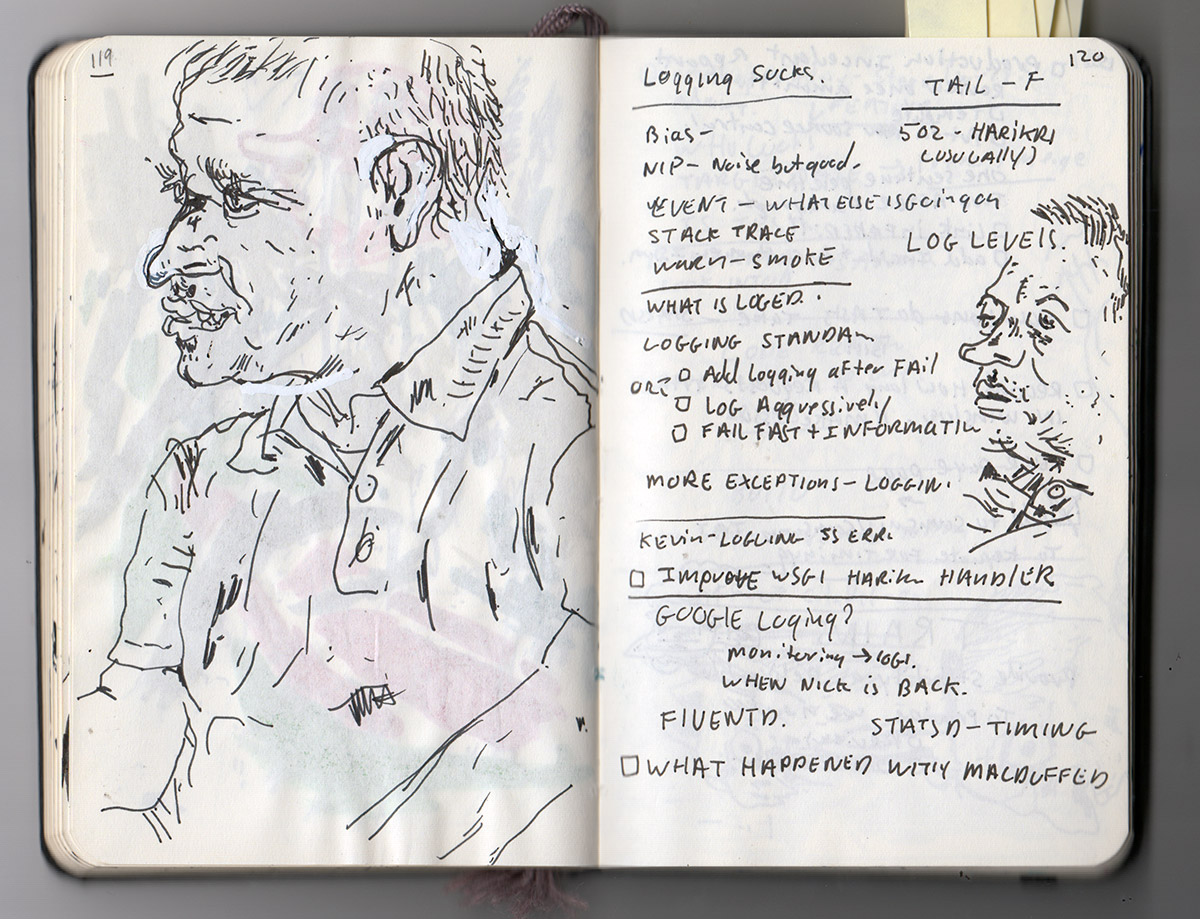 119
120
Logging Sucks.
TAIL - F
Bias -
502 - HARIKRI
(USUCALLY)
NIP - Noise but good.
EVENT - WHAT ELSE IS GOing on
STACK TRACE
LOG LEVELS.
WARN - SMOKE
WHAT IS LOGED.
LOGGING STANDA
□ Add Logging aFter FAil
OR?
□ LOG Aggressively
□ FAIL FAST + INFORMATIN
MORE EXCEPTIONS - LOGGIN.
KEVIN - LOGLING SS ERR.
□ IMPROVE WSGI HARIKI HANDLER
GOOGLE Loging?
monitoring → logs.
WHEN NICK is BACK.
FIUENTD.
STATSD - TIMING
□ WHAT HAPPENED WITH MACDUFFED